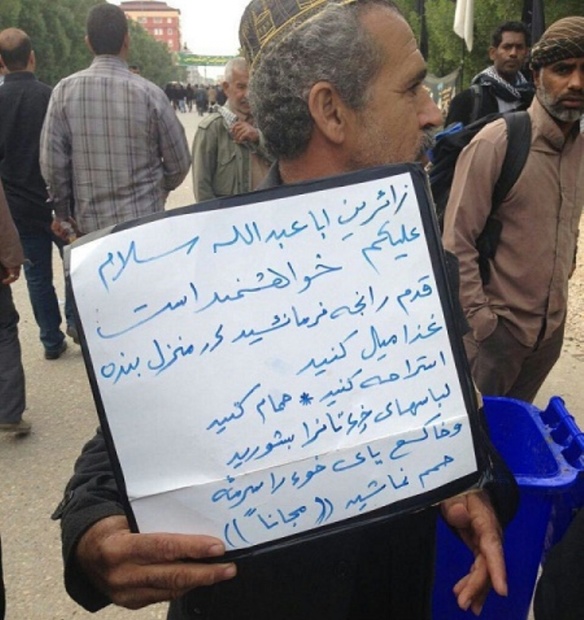 زائرین ابا عبدالله سلام
علیکم خواهشمند است
قدم رانجه فرمائشید در منزل بنده
غذا میل کنید
استراحه کنید * حمام کنید
لباسهای خوء تانرا بشورید
وخاک پای خوء را سرمه
نمائید (( مجاناً ))